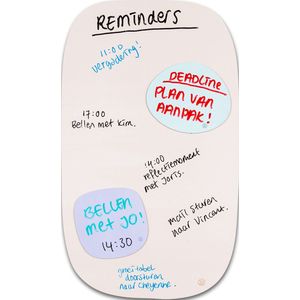 REMINDERS
11:00
vergadering!
DEADLINE
PLAN VAN
AANPAK!
17:00
Bellen met Kim.
14:00
reflectiemoment
met Joris.
BELLEN
met JO!
14:30
mail sturen
naar Vincent.
groeitabel
doorsturen
naar Cheyenne.